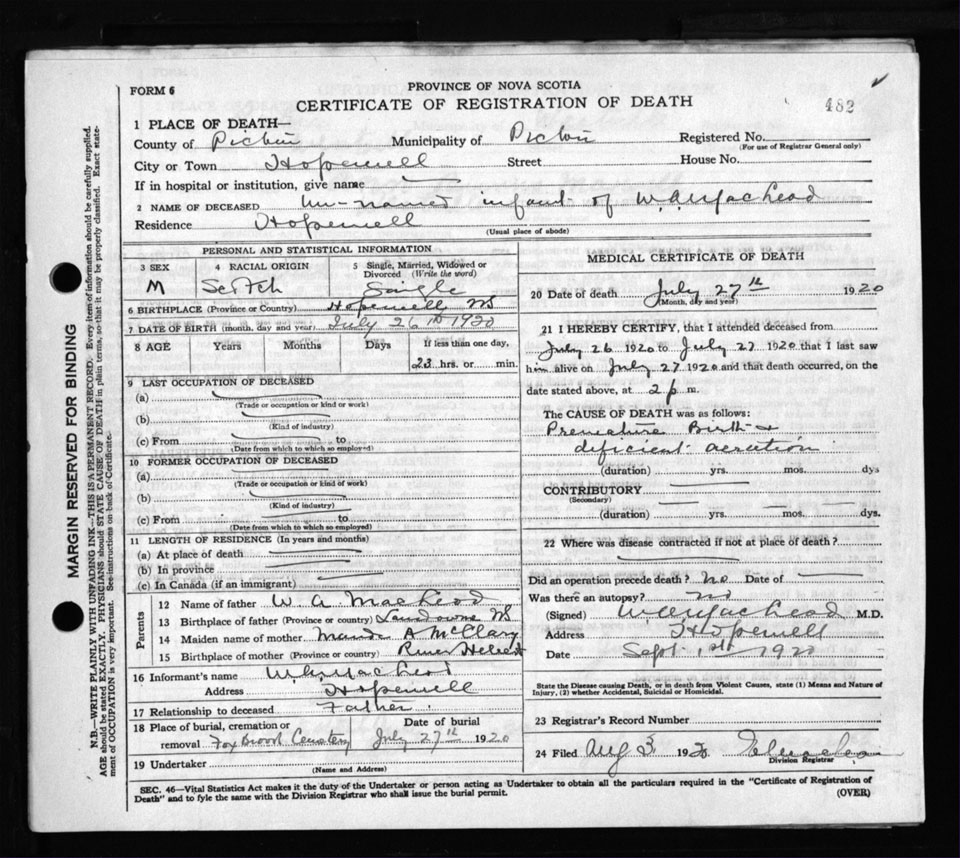 FORM 6
PROVINCE OF NOVA SCOTIA
CERTIFICATE OF REGISTRATION OF DEATH
482
1 PLACE OF DEATH—
County of Pictou Municipality of Pictou Registered No.
(For use of Registrar General only)
City or Town Hopewell Street House No.
If in hospital or institution, give name
2 NAME OF DECEASED Un-named infant of W.A. MacLeod
Residence Hopewell
(Usual place of abode)
PERSONAL AND STATISTICAL INFORMATION
3 SEX 4 RACIAL ORIGIN 5 Single, Married, Widowed or Divorced (Write the word)
M Scotch Single
6 BIRTHPLACE (Province or Country) Hopewell NS
7 DATE OF BIRTH (month, day and year) July 26th 1920
8 AGE Years Months Days If less than one day,
23 hrs. or min.
9 LAST OCCUPATION OF DECEASED
(a)
(Trade or occupation or kind or work)
(b)
(Kind of industry)
(c) From to
(Date from which to which so employed)
10 FORMER OCCUPATION OF DECEASED
(a)
(Trade or occupation or kind of work)
(b)
(Kind of industry)
(c) From to
(Date from which to which so employed)
11 LENGTH OF RESIDENCE (In years and months)
(a) At place of death
(b) In province
(c) In Canada (if an immigrant)
Parents
12 Name of father W A MacLeod
13 Birthplace of father (Province or country) Lansdowne NS
14 Maiden name of mother A McClary
15 Birthplace of mother (Province or country) River Hebert
16 Informant's name W.A. MacLeod
Address Hopewell
17 Relationship to deceased Father
18 Place of burial, cremation or Date of burial
removal Fox Brook Cemetery July 27th 1920
19 Undertaker
(Name and Address)
MEDICAL CERTIFICATE OF DEATH
20 Date of death July 27th 1920
(Month, day and year)
21 I HEREBY CERTIFY, that I attended deceased from
July 26 1920 to July 27 1920 that I last saw
him alive on July 27 1920 and that death occurred, on the
date stated above, at 2 p m.
The CAUSE OF DEATH was as follows:
Premature Birth +
deficient aeration
(duration) yrs. mos. dys
CONTRIBUTORY
(Secondary)
(duration) yrs. mos. dys.
22 Where was disease contracted if not at place of death?
Did an operation precede death? no Date of
Was there an autopsy? no
(Signed) W.A. MacLeod M.D.
Address Hopewell
Date Sept 1st 1920
State the Disease causing Death, or in death from Violent Causes, state (1) Means and Nature of
Injury, (2) whether Accidental, Suicidal or Homicidal.
23 Registrar's Record Number
24 Filed Aug 3 1920
Division Registrar
SEC. 46—Vital Statistics Act makes it the duty of the Undertaker or person acting as Undertaker to obtain all the particulars required in the "Certificate of Registration of
Death" and to fyle the same with the Division Registrar who shall issue the burial permit.
(OVER)
MARGIN RESERVED FOR BINDING
N.B.—WRITE PLAINLY WITH UNFADING INK—THIS IS A PERMANENT RECORD. Every item of information should be carefully supplied.
AGE should be stated EXACTLY. PHYSICIANS should STATE CAUSE OF DEATH in plain terms, so that it may be properly classified. Exact state-
ment of OCCUPATION is very important. See instructions on back of Certificate.